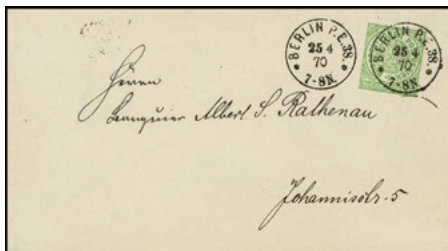 BERLIN P.E.38.
25 4
70
7-8N.
BERLIN P.E.38.
25 4
70
7-8N.
Herrn
Banquier Albert S. Rathenau
Johannisstr. 5